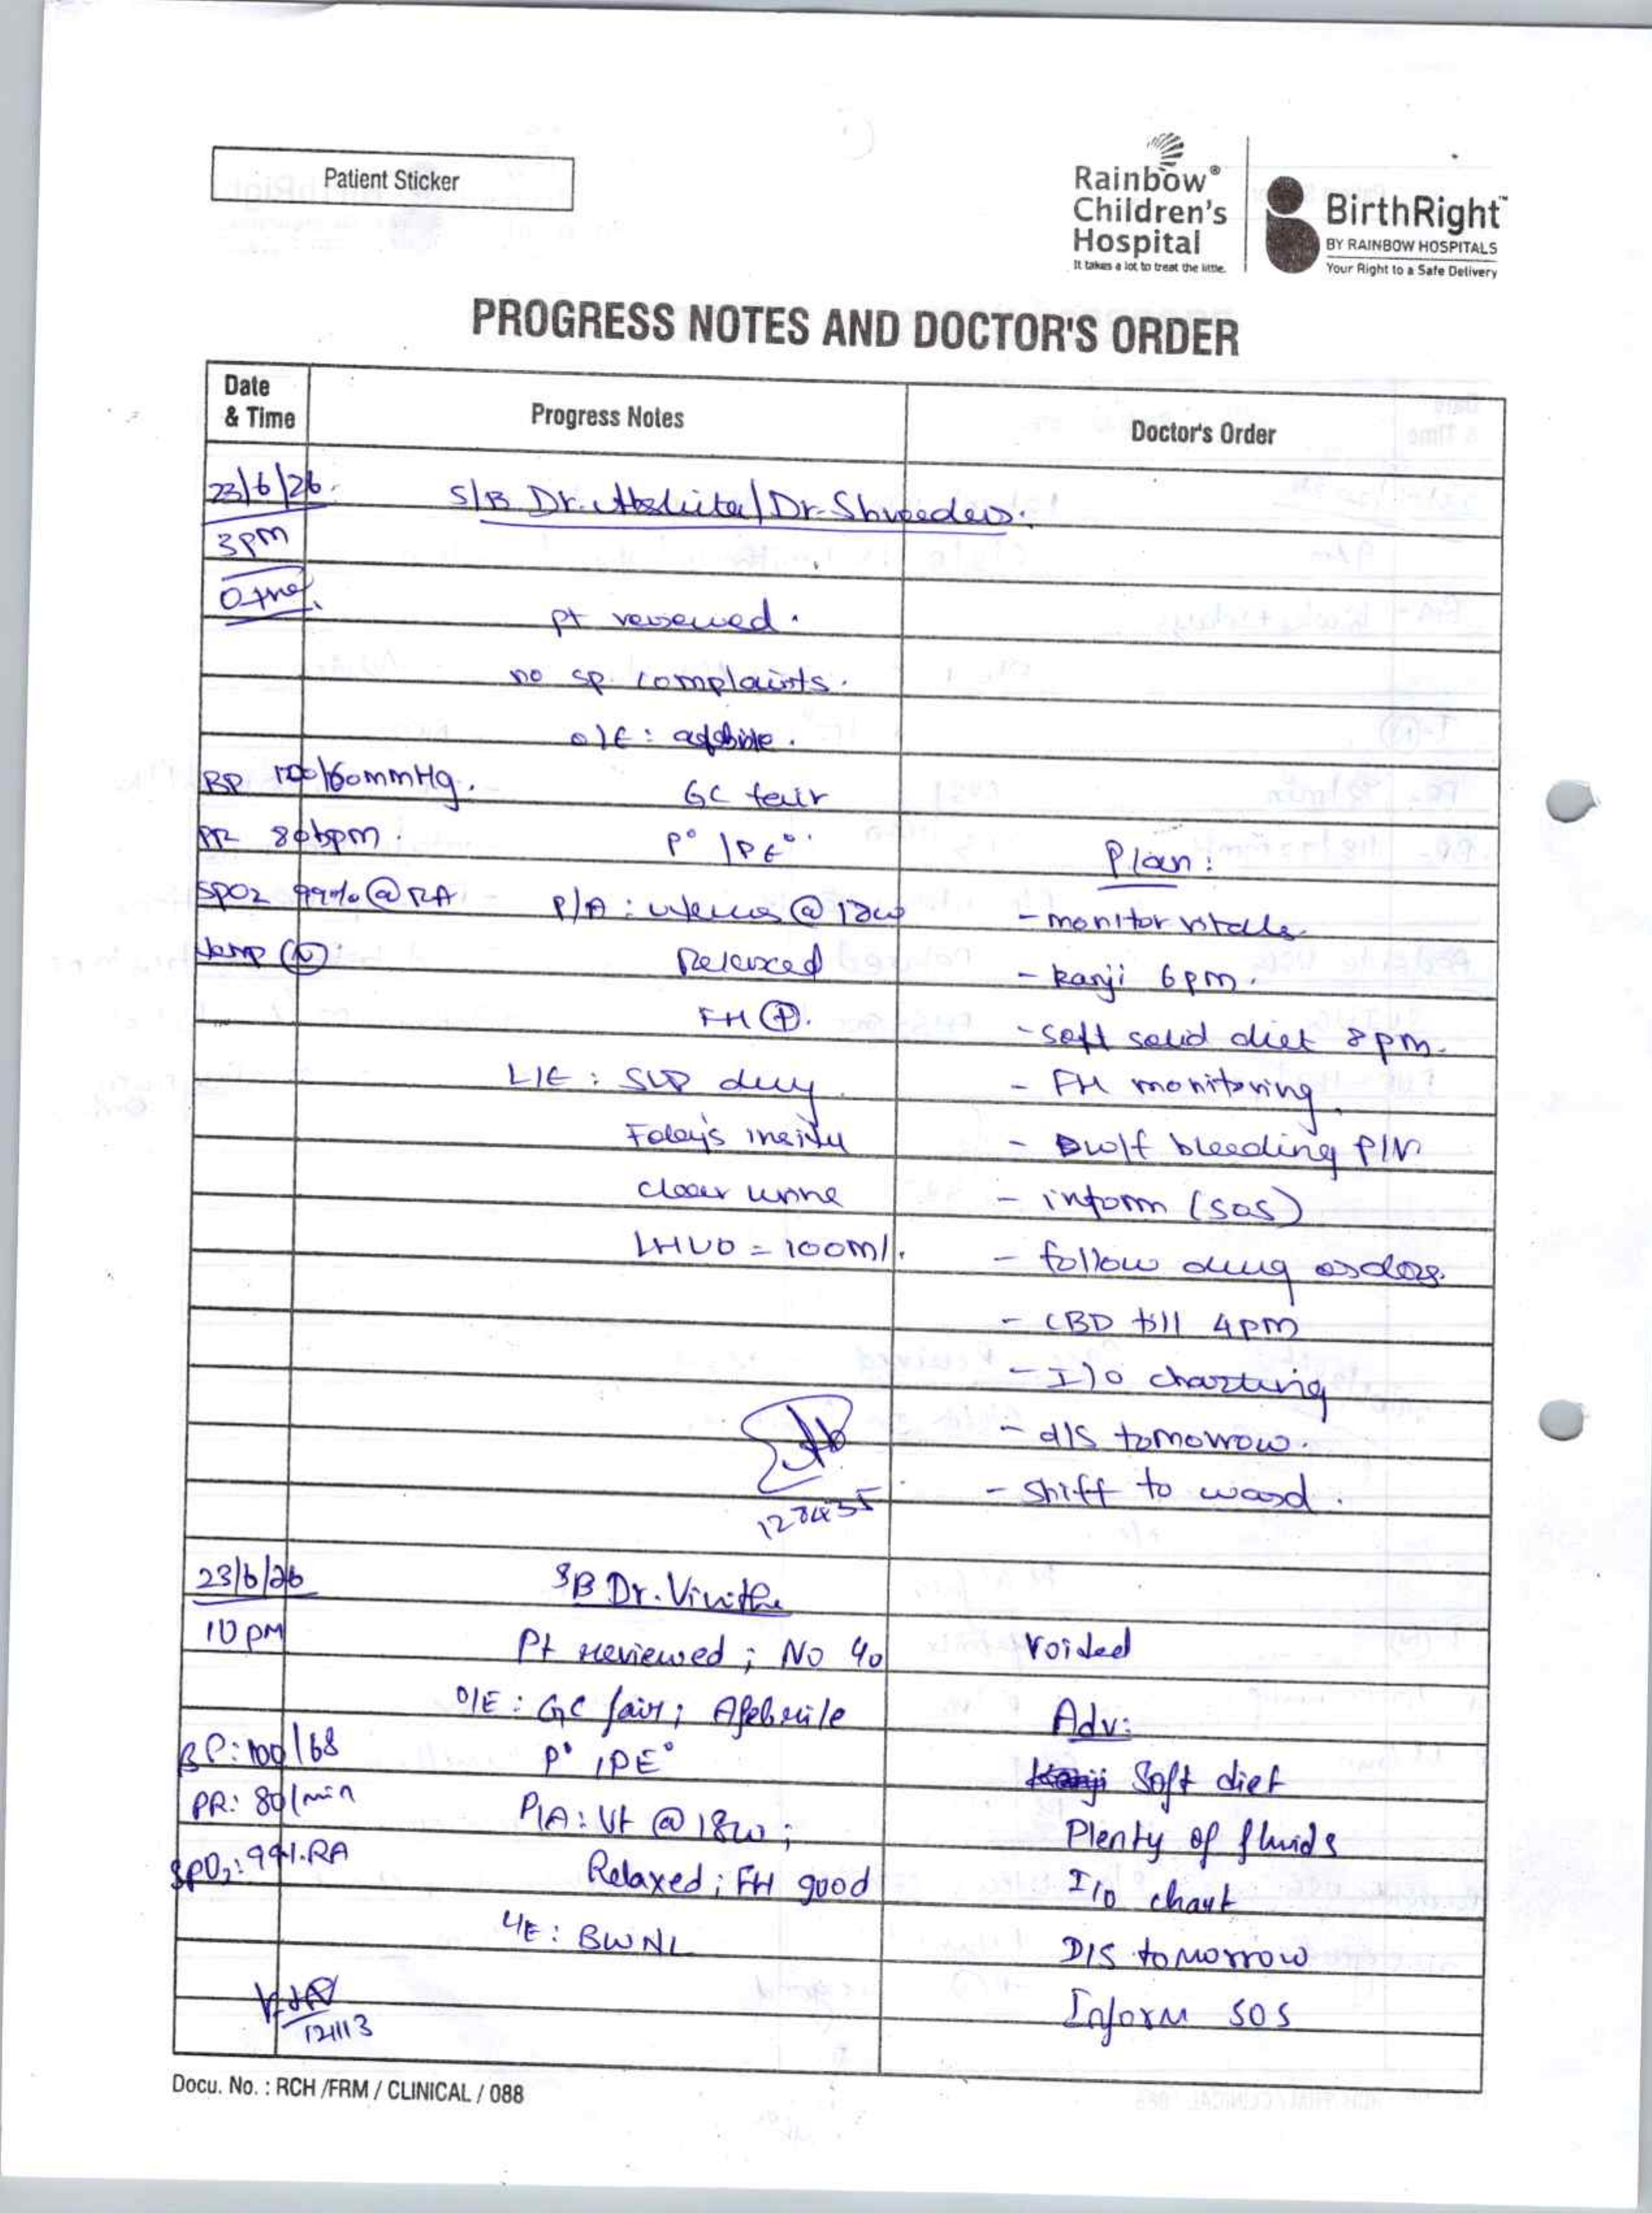 Patient Sticker
Rainbow®
Children's
Hospital
It takes a lot to treat the little.
BirthRight™
BY RAINBOW HOSPITALS
Your Right to a Safe Delivery
PROGRESS NOTES AND DOCTOR'S ORDER
Date
& Time
Progress Notes
Doctor's Order
23/6/26
S/B Dr. / Dr.
3pm
O +ve
pt reviewed.
no sp complaints.
O/E: afebrile.
BP 100/60mmHg.
GC fair
PR 80bpm.
P° / PE°
Plan:
SPO2 99% @ RA
P/A: uterus @ 18w
- monitor vitals
temp (N)
Relaxed
- kanji 6pm.
FH (+).
- soft solid diet 8pm.
L/E: dry
- FH monitoring.
Foley's insitu
- bleeding P/V
clear urine
- inform (sos)
LHUO = 100ml.
- follow drug orders.
- CBD till 4pm
- I/O charting
- d/s tomorrow.
- shift to ward.
23/6/26
SB Dr. Vinitha
10 pm
Pt reviewed; No c/o
Voided
O/E: GC fair; Afebrile
Adv:
BP: 100/68
P° / PE°
Kanji Soft diet
PR: 80/min
P/A: Ut @ 18w;
Plenty of fluids
SPO2: 99%.RA
Relaxed; FH good
I/O chart
L/E: BWNL
D/S tomorrow
Inform SOS
Docu. No. : RCH /FRM / CLINICAL / 088